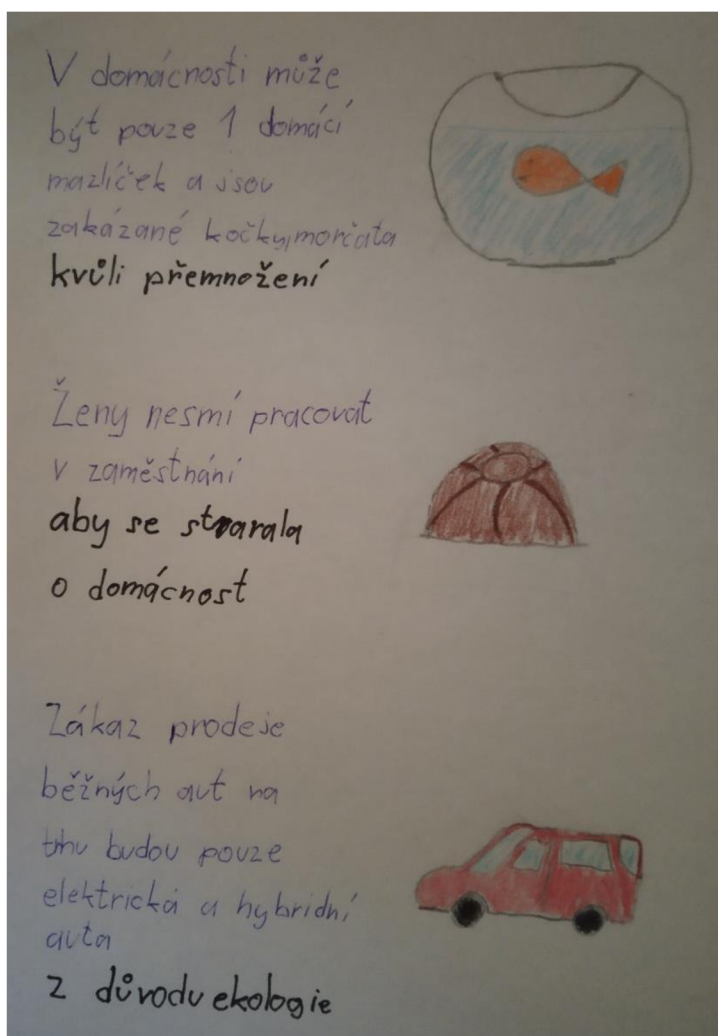 V domácnosti může
být pouze 1 domácí
mazlíček a jsou
zakázané kočky, morčata
kvůli přemnožení
Ženy nesmí pracovat
v zaměstnání
aby se starala
o domácnost
Zákaz prodeje
běžných aut na
trhu budou pouze
elektrická a hybridní
auta
z důvodu ekologie